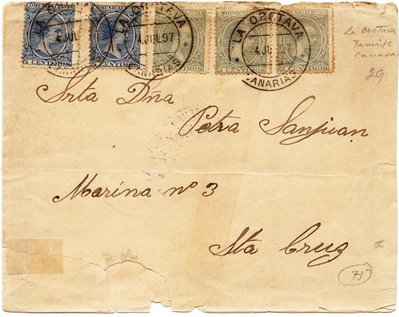 LA OROTAVA
4 JUL 97
CANARIAS
LA OROTAVA
4 JUL 97
CANARIAS
5 CENTIMOS
La Orotava
Tenerife
Canarias
29
Srta Dña
Petra Sanjuan
Marina nº 3
Sta Cruz
71